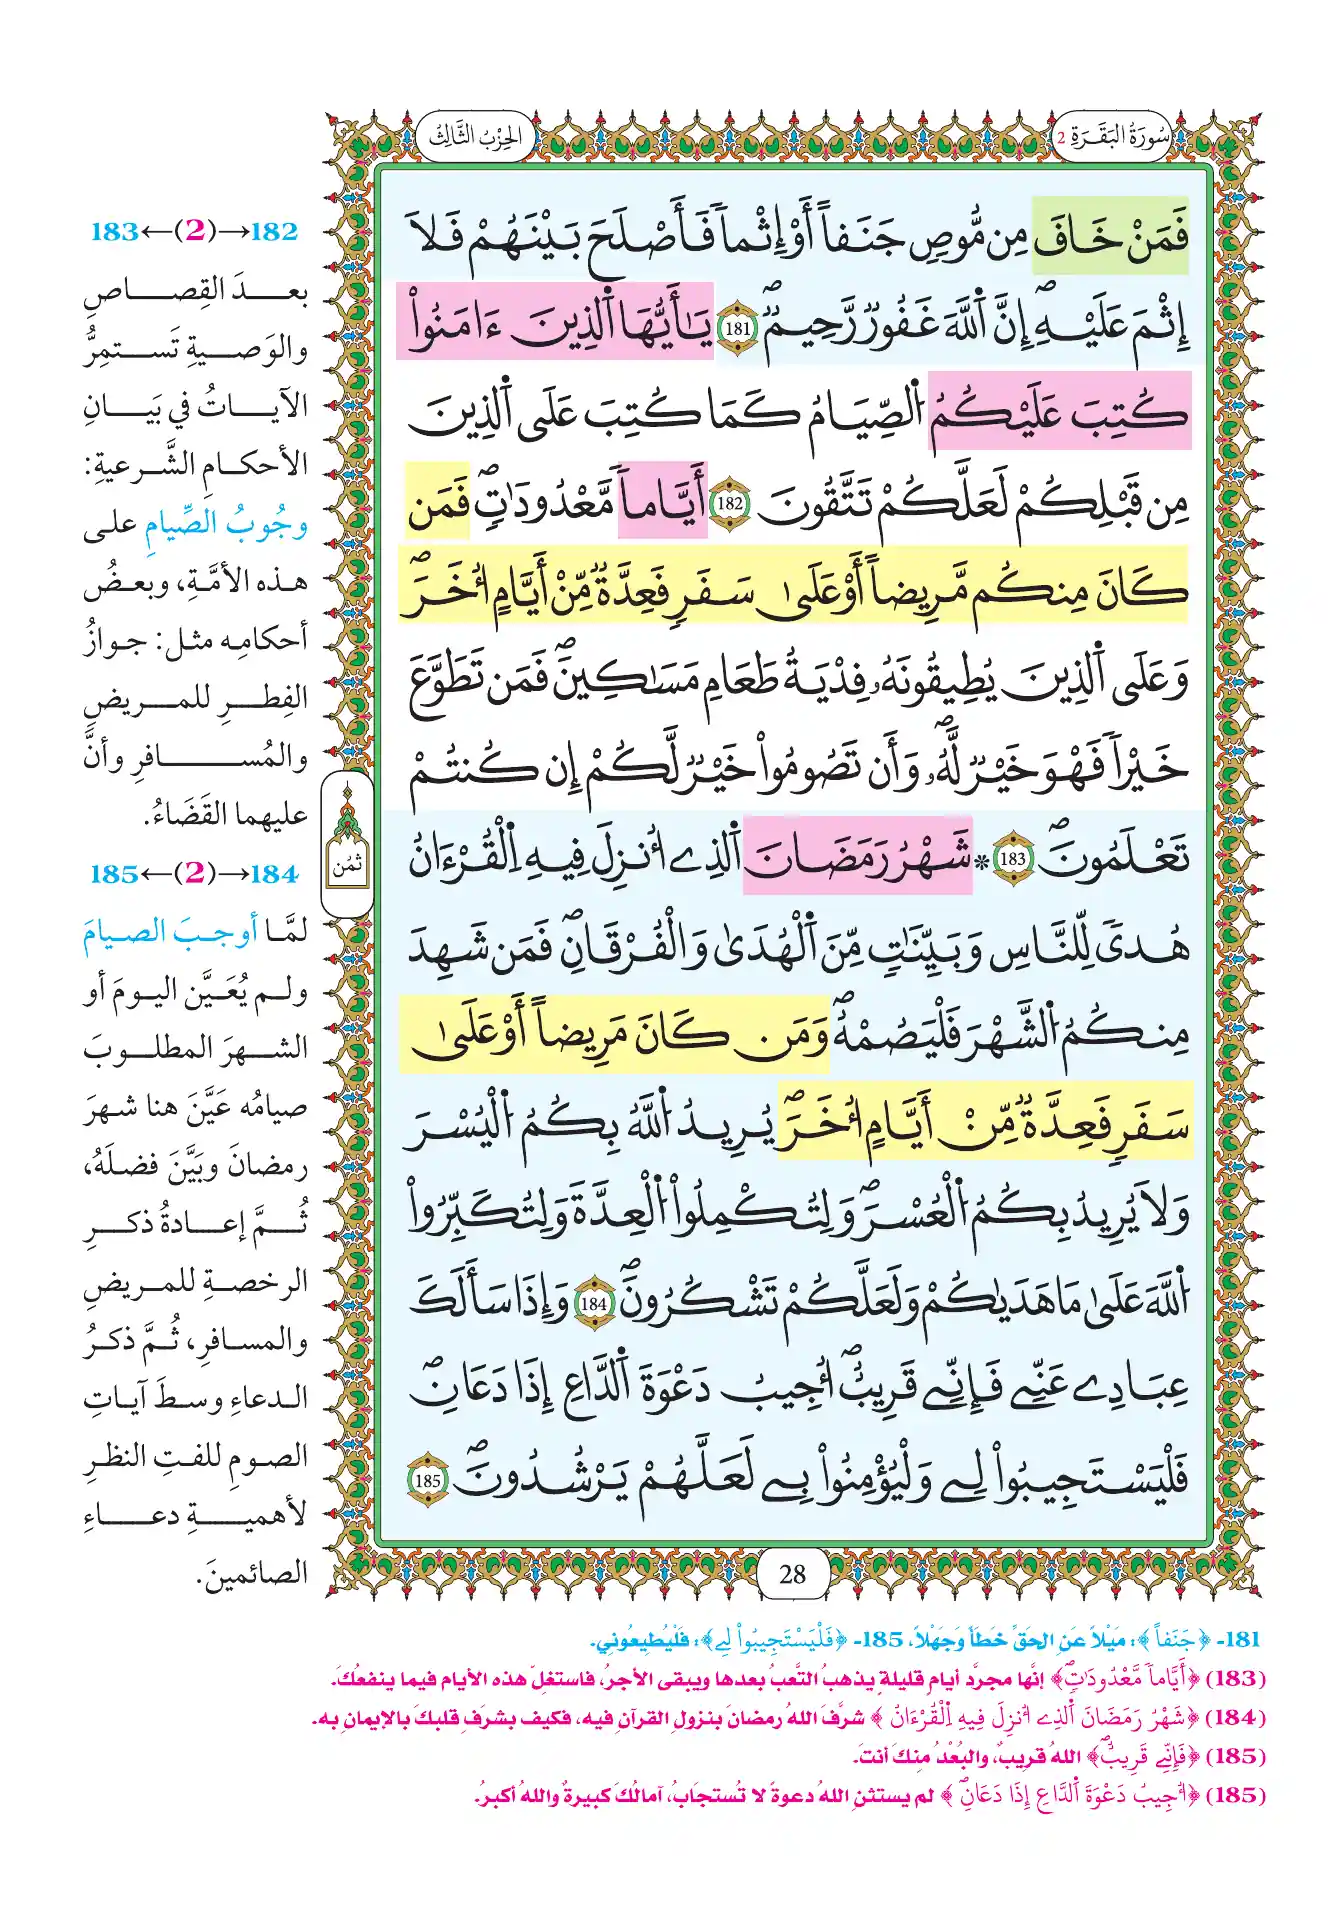 سُورَةُ البَقَرَةِ 2
الحِزْبُ الثَّالِثُ
فَمَنْ خَافَ مِن مُّوصٍ جَنَفاً أَوِ اِثْماً فَأَصْلَحَ بَيْنَهُمْ فَلَا
إِثْمَ عَلَيْهِۖ إِنَّ اَللَّهَ غَفُورٌ رَّحِيمٌۖ 181 يَٰأَيُّهَا اَلذِينَ ءَامَنُواْ
كُتِبَ عَلَيْكُمُ اُلصِّيَامُ كَمَا كُتِبَ عَلَى اَلذِينَ
مِن قَبْلِكُمْ لَعَلَّكُمْ تَتَّقُونَ 182 أَيَّاماً مَّعْدُودَٰتٖۖ فَمَن
كَانَ مِنكُم مَّرِيضاً أَوْ عَلَىٰ سَفَرٖ فَعِدَّةٌ مِّنْ أَيَّامٍ اُخَرَۖ
وَعَلَى اَلذِينَ يُطِيقُونَهُۥ فِدْيَةُ طَعَامِ مَسَٰكِينَۖ فَمَن تَطَوَّعَ
خَيْراً فَهْوَ خَيْرٌ لَّهُۥۖ وَأَن تَصُومُواْ خَيْرٌ لَّكُمْ إِن كُنتُمْ
تَعْلَمُونَۖ 183 * شَهْرُ رَمَضَانَ اَلذِے أُنزِلَ فِيهِ اِلْقُرْءَانُ
هُدىً لِّلنَّاسِ وَبَيِّنَٰتٖ مِّنَ اَلْهُدَىٰ وَالْفُرْقَانِۖ فَمَن شَهِدَ
مِنكُمُ اُلشَّهْرَ فَلْيَصُمْهُۖ وَمَن كَانَ مَرِيضاً أَوْ عَلَىٰ
سَفَرٖ فَعِدَّةٌ مِّنْ أَيَّامٍ اُخَرَۖ يُرِيدُ اُللَّهُ بِكُمُ اُلْيُسْرَ
وَلَا يُرِيدُ بِكُمُ اُلْعُسْرَۖ وَلِتُكْمِلُواْ اُلْعِدَّةَ وَلِتُكَبِّرُواْ
اُللَّهَ عَلَىٰ مَا هَدَىٰكُمْ وَلَعَلَّكُمْ تَشْكُرُونَۖ 184 وَإِذَا سَأَلَكَ
عِبَادِے عَنِّے فَإِنِّے قَرِيبٌۖ اُجِيبُ دَعْوَةَ اَلدَّاعِ إِذَا دَعَانِۖ
فَلْيَسْتَجِيبُواْ لِے وَلْيُؤْمِنُواْ بِے لَعَلَّهُمْ يَرْشُدُونَۖ 185
ثُمُن
28
182→(2)←183
بعدَ القِصاصِ
والوَصيةِ تَستمِرُّ
الآياتُ في بَيانِ
الأحكامِ الشَّرعيةِ:
وجُوبُ الصِّيامِ على
هذه الأمَّةِ، وبعضُ
أحكامِه مثل: جوازُ
الفِطرِ للمريضِ
والمُسافرِ وأنَّ
عليهما القَضَاءُ.
184→(2)←185
لمَّا أوجبَ الصيامَ
ولم يُعَيَّن اليومَ أو
الشهرَ المطلوبَ
صيامُه عَيَّنَ هنا شهرَ
رمضانَ وبَيَّنَ فضلَهُ،
ثُمَّ إعادةُ ذكرِ
الرخصةِ للمريضِ
والمسافرِ، ثُمَّ ذكرُ
الدعاءِ وسطَ آياتِ
الصومِ للفتِ النظرِ
لأهميةِ دعاءِ
الصائمينَ.
181- ﴿جَنَفاً﴾: مَيْلاً عَنِ الحَقِّ خطَأً وَجَهْلاً، 185- ﴿فَلْيَسْتَجِيبُواْ لِے﴾: فَلْيُطِيعُونِي.
(183) ﴿أَيَّاماً مَّعْدُودَٰتٖۖ﴾ إنَّها مجرَّد أيامٍ قليلةٍ يذهبُ التَّعبُ بعدها ويبقى الأجرُ، فاستغلّ هذه الأيام فيما ينفعُكَ.
(184) ﴿شَهْرُ رَمَضَانَ اَلذِے أُنزِلَ فِيهِ اِلْقُرْءَانُ﴾ شرَّفَ اللهُ رمضانَ بنزولِ القرآنِ فيه، فكيف بشرفِ قلبكَ بالإيمانِ به.
(185) ﴿فَإِنِّے قَرِيبٌۖ﴾ اللهُ قريبٌ، والبُعْدُ مِنكَ أنتَ.
(185) ﴿اُجِيبُ دَعْوَةَ اَلدَّاعِ إِذَا دَعَانِۖ﴾ لم يستثنِ اللهُ دعوةً لا تُستجَابُ، آمالُكَ كبيرةٌ واللهُ أكبرُ.